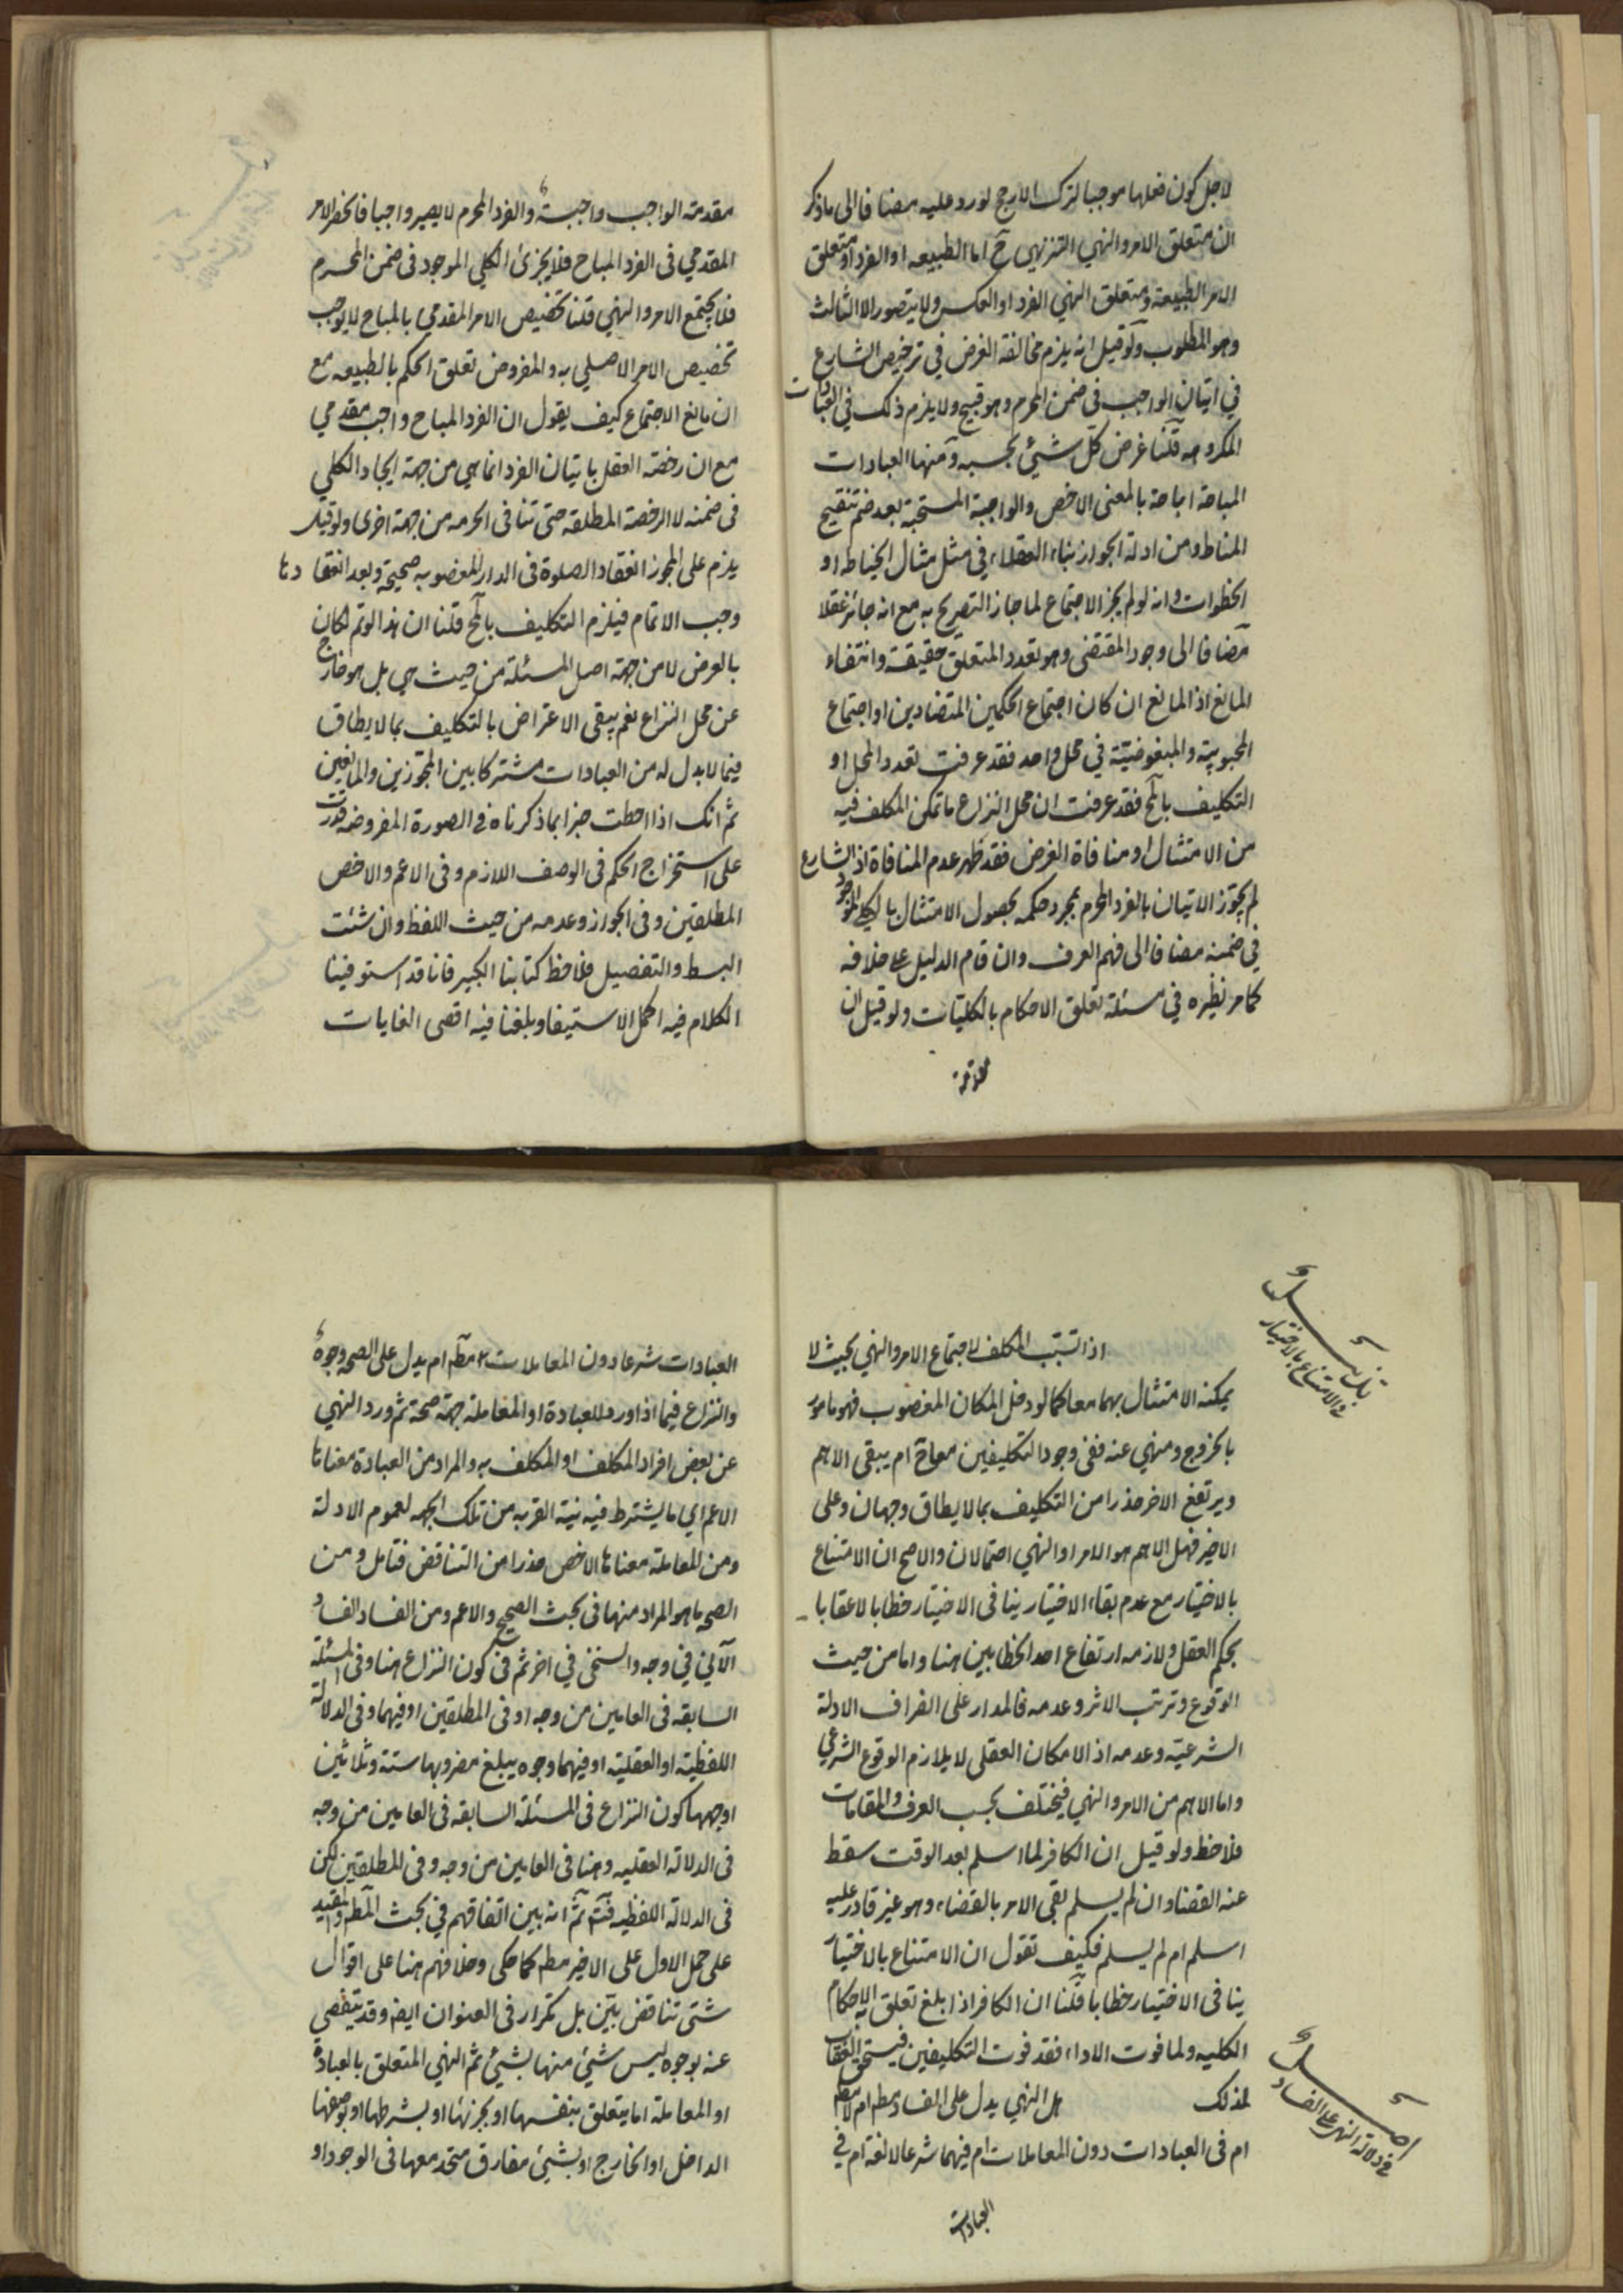 لاجل كون فعلها موجبا لترك الارجح لورد عليه مضافا الى ماذكر
ان متعلق الامر والنهي التنزيهي ح اما الطبيعه او الفرد او متعلق
الامر الطبيعة ومتعلق النهي الفرد او العكس ولا يتصور الا الثالث
وهو المطلوب ولو قيل انه يلزم مخالفة الغرض في ترخيص الشارع
في اتيان الواجب في ضمن المحرم وهو قبيح ولا يلزم ذلك في العبادات
المكروهه قلنا غرض كل شيئ بحسبه ومنها العبادات
المباحة اباحة بالمعنى الاخص والواجبة المستحبة بعد ضم تنقيح
المناط ومن ادلة الجواز بناء العقلاء في مثل مثال الخياطه او
الخطوات وانه لو لم يجز الاجتماع لما جاز التصريح به مع انه جائز عقلا
مضافا الى وجود المقتضى وهو تعدد المتعلق حقيقة وانتفاء
المانع اذ المانع ان كان اجتماع الحكمين المتضادين او اجتماع
المحبوبية والمبغوضيّة في محل واحد فقد عرفت تعدد المحل او
التكليف بالمح فقد عرفت ان محل النزاع ما تمكن المكلف فيه
من الامتثال او منافاة الغرض فقد ظهر عدم المنافاة اذ الشارع
لم يجوّز الاتيان بالفرد المحرم بمجرد حكمه بحصول الامتثال بالكلي الموجود
في ضمنه مضافا الى فهم العرف وان قام الدليل على خلافه
كما مر نظيره في مسئلة تعلق الاحكام بالكليّات ولو قيل ان
مقدمة
مقدمة الواجب واجبة والفرد المحرم لا يصير واجبا فانحصر الامر
المقدمي في الفرد المباح فلا يجزئ الكلي الموجود في ضمن المحرم
فلا يجتمع الامر والنهي قلنا تخصيص الامر المقدمي بالمباح لا يوجب
تخصيص الامر الاصلي به والمفروض تعلق الحكم بالطبيعه مع
ان مانع الاجتماع كيف يقول ان الفرد المباح واجب مقدمي
مع ان رخصة العقل باتيان الفرد انما هي من جهة ايجاد الكلي
في ضمنه لا الرخصة المطلقة حتى تنافى الحرمه من جهة اخرى ولو قيل
يلزم على المجوز انعقاد الصلوة في الدار المغصوبه صحيحة وبعد انعقادها
وجب الاتمام فيلزم التكليف بالمح قلنا ان هذا لو تم لكان
بالعرض لا من جهة اصل المسئلة من حيث هي بل هو خارج
عن محل النزاع نعم يبقى الاعتراض بالتكليف بما لا يطاق
فيما لا بدل له من العبادات مشتركا بين المجوزين والمانعين
ثم انك اذا احطت خبرا بما ذكرناه في الصورة المفروضه قدرت
على استخراج الحكم في الوصف اللازم وفي الاعم والاخص
المطلقين وفي الجواز وعدمه من حيث اللفظ وان شئت
البسط والتفصيل فلاحظ كتابنا الكبير فانا قد استوفينا
الكلام فيه اكمل الاستيفا وبلغنا فيه اقصى الغايات
في الامتناع بالاختيار
اذا تسبّب المكلف لاجتماع الامر والنهي بحيث لا
يمكنه الامتثال بهما معا كما لو دخل المكان المغصوب فهو مامور
بالخروج ومنهي عنه ففي وجود التكليفين معا ح ام يبقى الاهم
ويرتفع الاخر حذرا من التكليف بما لا يطاق وجهان وعلى
الاخير فهل الاهم هو الامر او النهي احتمالان والاصح ان الامتناع
بالاختيار مع عدم بقاء الاختيار ينافى الاختيار خطابا لا عقابا
بحكم العقل ولازمه ارتفاع احد الخطابين هنا واما من حيث
الوقوع وترتب الاثر وعدمه فالمدار على انصراف الادلة
الشرعيّة وعدمه اذ الامكان العقلي لا يلازم الوقوع الشرعي
واما الاهم من الامر والنهي فيختلف بحسب العرف والمقامات
فلاحظ ولو قيل ان الكافر لما اسلم بعد الوقت سقط
عنه القضا وان لم يسلم بقي الامر بالقضاء وهو غير قادر عليه
اسلم ام لم يسلم فكيف تقول ان الامتناع بالاختيار
ينافى الاختيار خطابا قلنا ان الكافر اذا بلغ تعلق به الاحكام
الكليه ولما فوت الاداء فقد فوت التكليفين فيستحق العقاب
لذلك هل النهي يدل على الفساد مطم ام لا مطم
في دلالة النهي على الفساد
ام في العبادات دون المعاملات ام فيهما شرعا لا لغة ام في
العبادات
العبادات شرعا دون المعاملات مطم ام يدل على الصحه وجوه
والنزاع فيما اذا ورد للعبادة او المعاملة جهة صحة ثم ورد النهي
عن بعض افراد المكلف او المكلف به والمراد من العبادة معناها
الاعم اي ما يشترط فيه نية القربه من تلك الجهه لعموم الادلة
ومن المعاملة معناها الاخص حذرا من التناقض فتامل ومن
الصحه ما هو المراد منها في بحث الصحيح والاعم ومن الفساد الفساد
الآلي في وجه والسنخي في اخر ثم في كون النزاع هنا وفي المسئلة
السابقه في العامين من وجه او في المطلقين او فيهما وفي الدلالة
اللفظية او العقلية او فيهما وجوه يبلغ مضروبها ستة وثلاثين
اوجهها كون النزاع في المسئلة السابقه في العامين من وجه
في الدلالة العقليه وهنا في العامين من وجه وفي المطلقين لكن
في الدلالة اللفظيه فتم ثم انه بين اتفاقهم في بحث المطم والمقيد
على حمل الاول على الاخير مطم كما حكى وخلافهم هنا على اقوال
شتى تناقض بيّن بل تكرار في العنوان ايضا وقد يتفصي
عنه بوجوه ليس شيئ منها بشيئ ثم النهي المتعلق بالعبادة
او المعاملة اما يتعلق بنفسها او بجزئها او بشرطها او بوصفها
الداخل او الخارج او بشيئ مفارق متحد معها في الوجود او